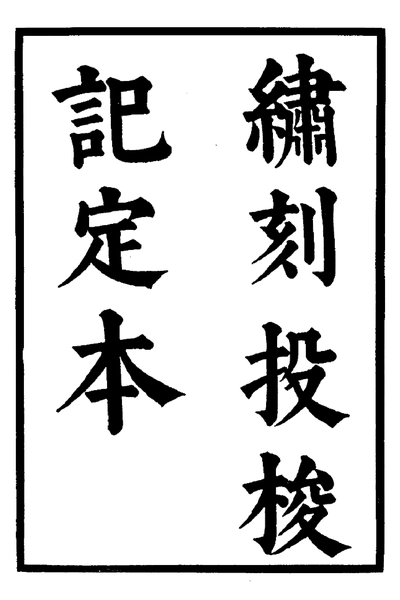 繡刻投梭
記定本